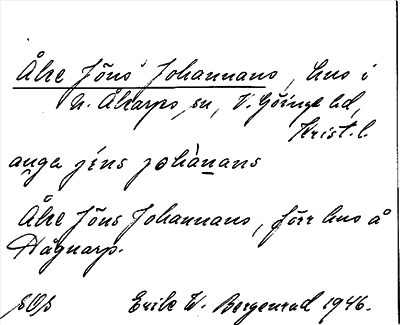 Åke Jöns Johannans, hus i
N. Åkarps sn, V. Göinge hd,
Krist. l.
Åke Jöns Johannans, förr hus å
Hågnarp.
Erik W. Bergenrad 1946.